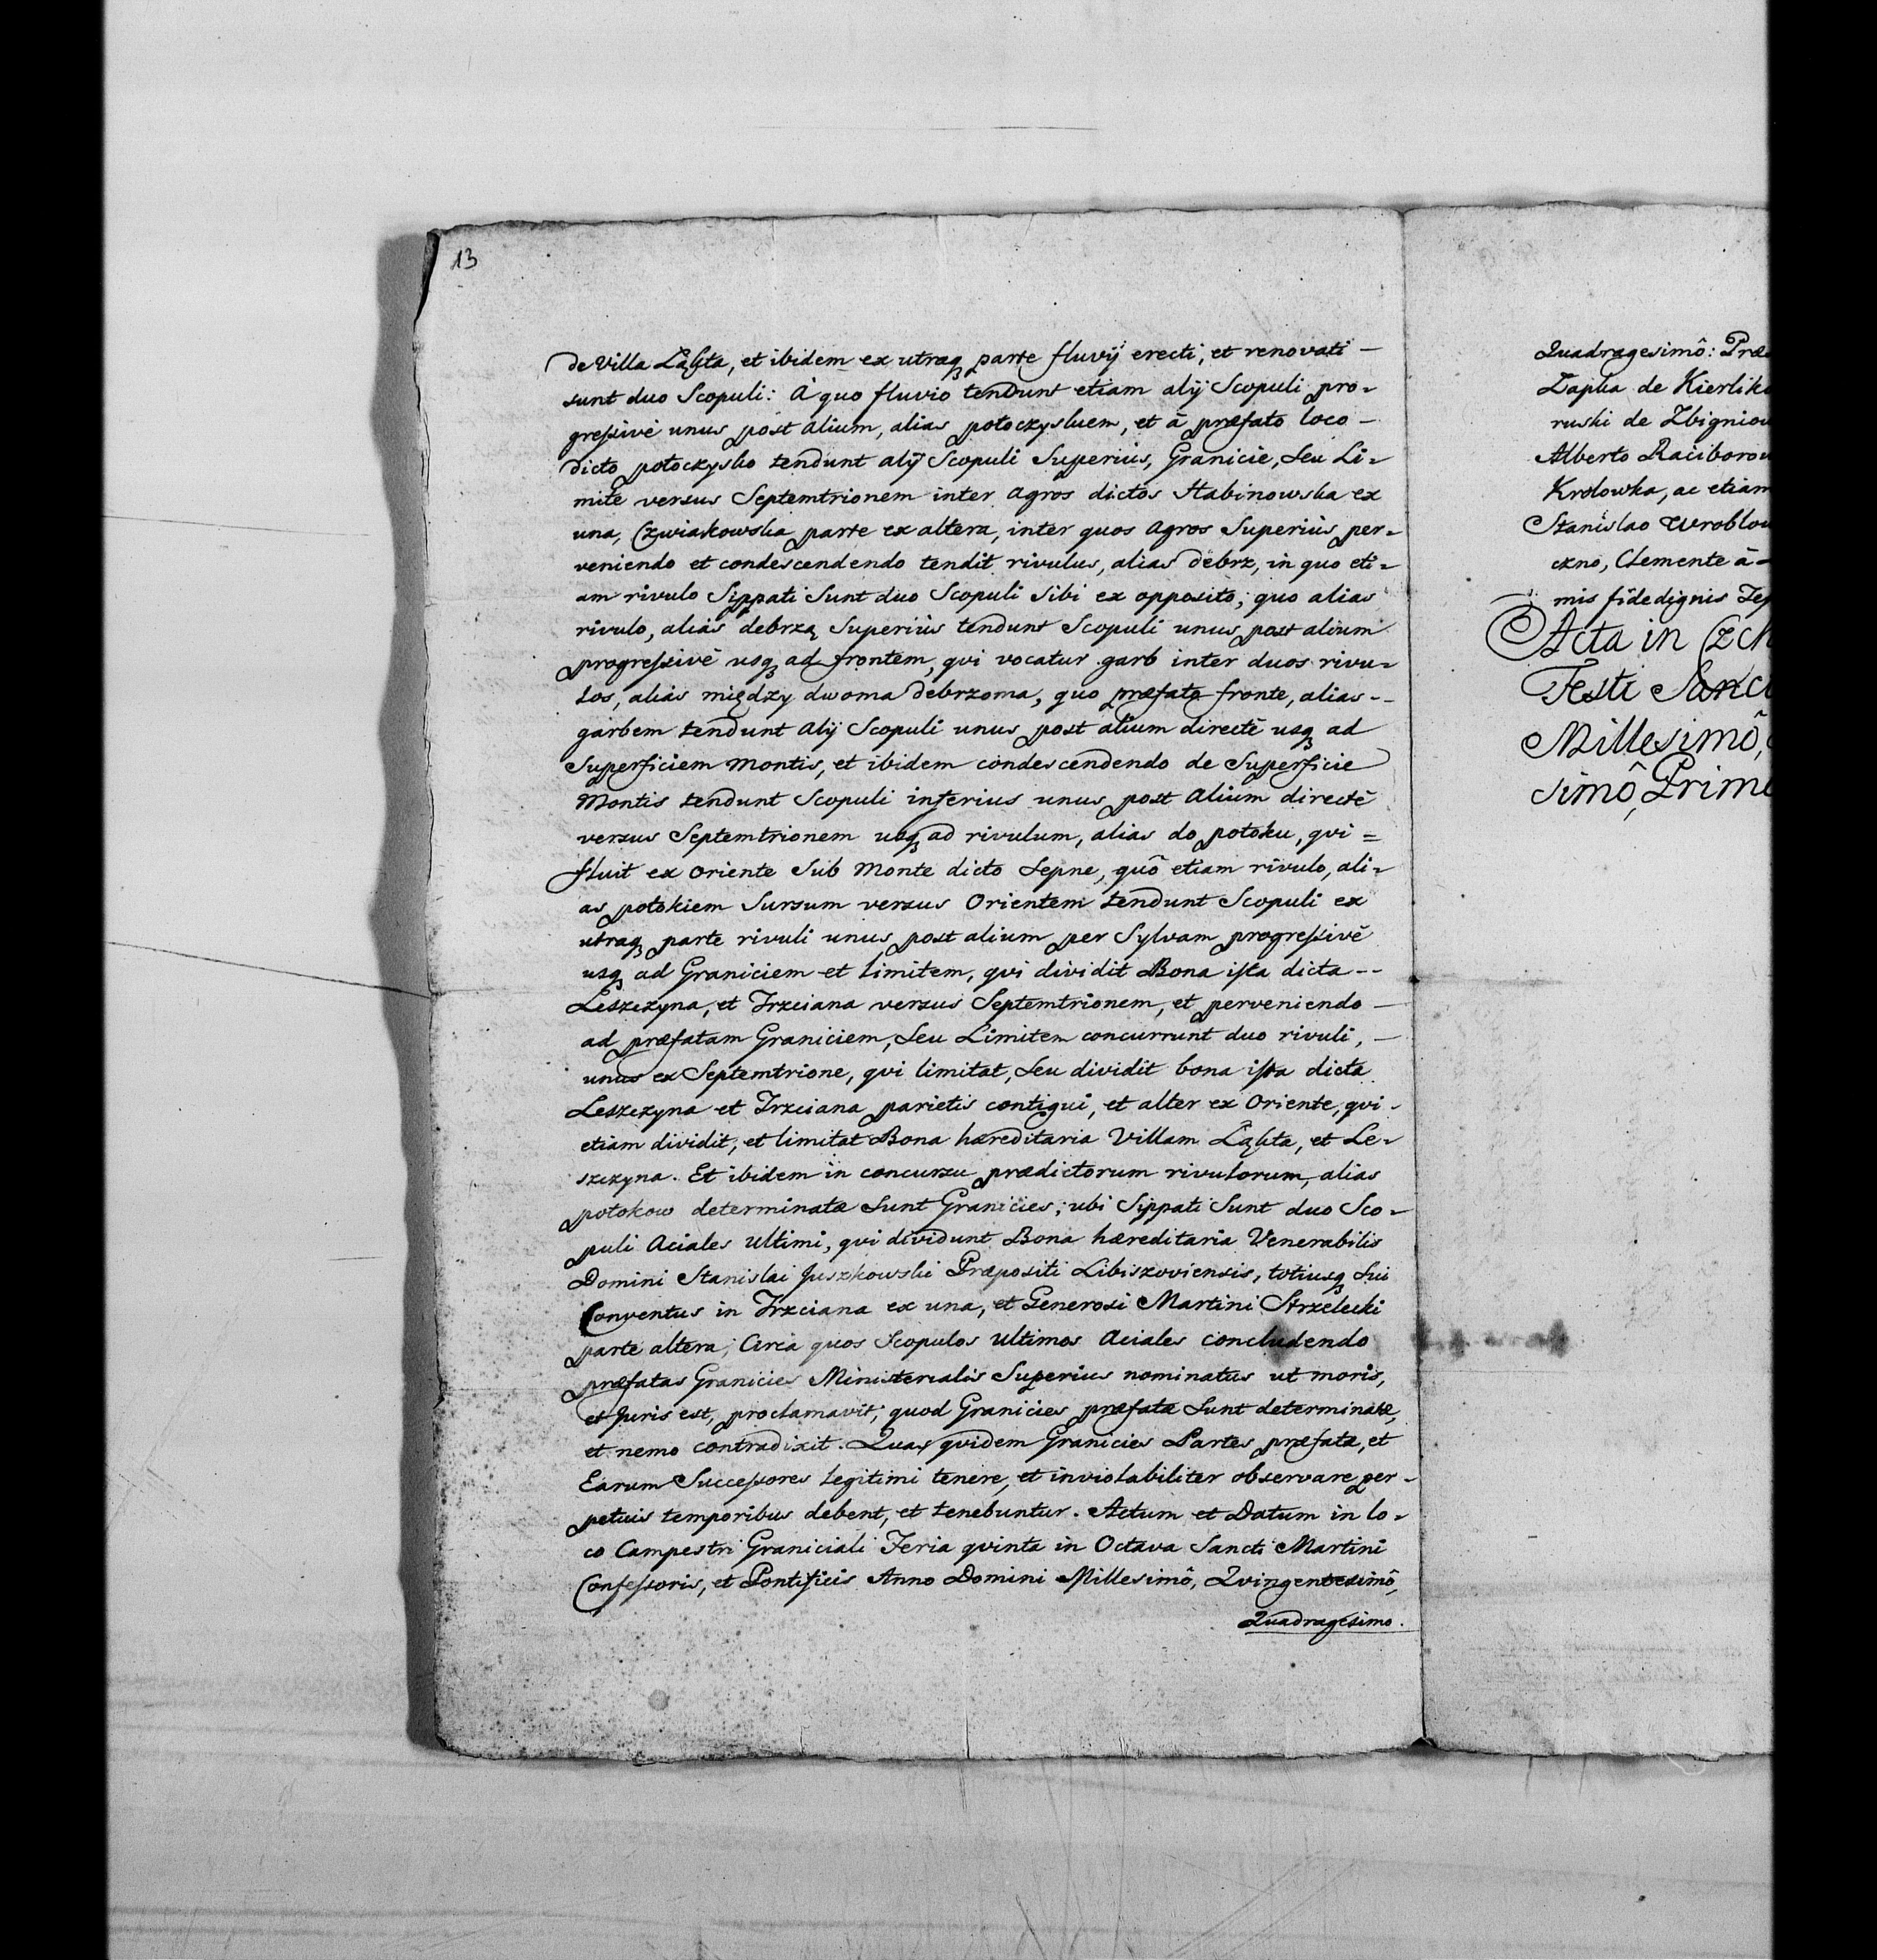 13
de Villa Łąkta, et ibidem ex utraqꝫ parte fluvÿ erecti, et renovati –
sunt duo Scopuli: à quo fluvio tendunt etiam alÿ Scopuli pro-
greſsivè unus post alium, alias potoczyskiem, et à præfato loco –
dicto potoczysko tendunt alÿ Scopuli Superiùs, Granicie, Seu Li-
mite versus Septemtrionem inter agros dictos Stabinowska ex
una, Czwiakowska parte ex altera, inter quos agros Superiùs per-
veniendo et condescendendo tendit rivulus, alias debrz, in quo eti-
am rivulo Sippati Sunt duo Scopuli Sibi ex opposito; quo alias
rivulo, aliàs debrzą Superiùs tendunt Scopuli unus post alium
progreſsivè usqꝫ ad frontem, qvi vocatur garb inter duos rivu-
los, aliàs między dwoma debrzoma, quo præfata fronte, alias --
garbem tendunt alÿ Scopuli unus post alium directè usqꝫ ad
Superficiem montis, et ibidem condescendendo de Superficie
Montis tendunt Scopuli inferius unus post alium directè
versus Septemtrionem usqꝫ ad rivulum, alias do potoku, qvi =
fluit ex oriente Sub Monte dicto Sepne, quô etiam rivulo, ali-
as potokiem Sursum versus Orientem tendunt Scopuli ex
utraqꝫ parte rivuli unus post alium per Sylvam progreſsivè
usqꝫ ad Graniciem et limitem, qvi dividit Bona iſta dicta --
Leszczyna, et Trzciana versus Septemtrionem, et perveniendo –
ad præfatam Graniciem, Seu Limitem concurrunt duo rivuli, –
unus ex Septemtrione, qvi limitat, Seu dividit bona iſta dicta
Leszczyna et Trzciana parietis contigui, et alter ex Oriente, qvi -
etiam dividit, et limitat Bona hæreditaria Villam Łąkta, et Le-
szczyna. Et ibidem in concursu prædictorum rivulorum, alias
potokow determinatæ Sunt Granicies; ubi Sippati Sunt duo Sco-
puli Aciales ultimi, qvi dividunt Bona hæreditaria Venerabilis
Domini Stanislai Juszkowski Præpositi Libiszoviensis, totiusqꝫ Sui
Conventus in Trzciana ex una, et Generosi Martini Strzelecki
parte altera; Circa quos Scopulos ultimos Aciales concludendo
præfatas Granicies Ministerialis Superius nominatus ut moris,
et Juris est, proclamavit; quod Granicies præfatæ Sunt determinatæ,
et nemo contradixit. Quas qvidem Granicies Partes præfatæ, et
Earum Succeſsores legitimi tenere, et inviolabiliter observare per-
petuis temporibus debent, et tenebuntur. Actum et Datum in lo-
co Campestri Graniciali Feria qvinta in Octava Sancti Martini
Confeſsoris, et Pontificis Anno Domini Millesimô, Qvingentesimô,
Quadragesimo.
Quadragesimô: Præ
Łapka de Kierlik
ruski de Zbignio
Alberto Raciboro
Krolowka, ac etiam
Stanislao Wroblo
czno, Clemente à-
mis fide dignis Te
Acta in Cz
Festi Sanc
Millesimô,
simô, Prim